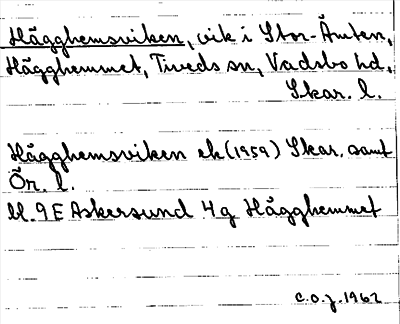 Hägghemsviken, vik i Stor-Ämten,
Hägghemmet, Tiveds sn, Vadsbo hd,
Skar. l.
Hägghemsviken ek (1959) Skar. samt
Ör. l.
Bl. 9E Askersund 4g Hägghemmet
C.O.J. 1962